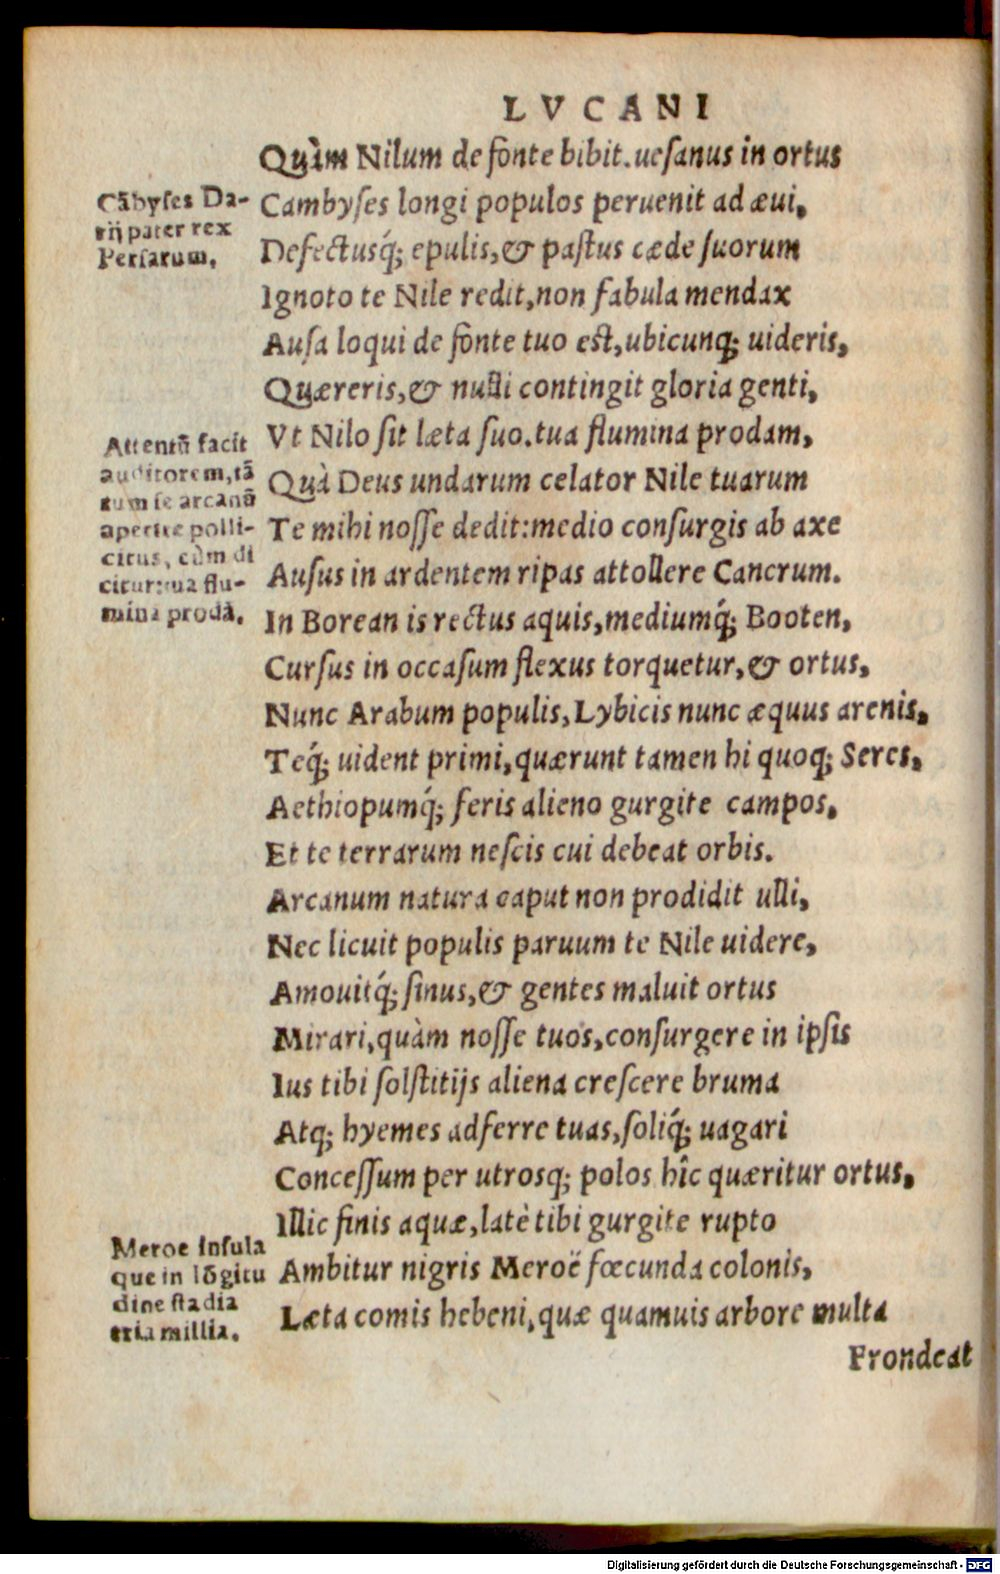 LVCANI
Quàm Nilum de fonte bibit. uesanus in ortus
Cambyses longi populos peruenit ad æui,
Defectusq́; epulis, & pastus cæde suorum
Ignoto te Nile redit, non fabula mendax
Ausa loqui de fonte tuo est, ubicunq; uideris,
Quæreris, & nulli contingit gloria genti,
Vt Nilo sit læta suo. tua flumina prodam,
Quà Deus undarum celator Nile tuarum
Te mihi nosse dedit: medio consurgis ab axe
Ausus in ardentem ripas attollere Cancrum.
In Borean is rectus aquis, mediumq́; Booten,
Cursus in occasum flexus torquetur, & ortus,
Nunc Arabum populis, Lybicis nunc æquus arenis,
Teq́; uident primi, quærunt tamen hi quoq; Seres,
Aethiopumq́; feris alieno gurgite campos,
Et te terrarum nescis cui debeat orbis.
Arcanum natura caput non prodidit ulli,
Nec licuit populis paruum te Nile uidere,
Amouitq́; sinus, & gentes maluit ortus
Mirari, quàm nosse tuos, consurgere in ipsis
Ius tibi solstitijs aliena crescere bruma
Atq; hyemes adferre tuas, soliq́; uagari
Concessum per utrosq; polos hîc quæritur ortus,
Illic finis aquæ, latè tibi gurgite rupto
Ambitur nigris Meroë fœcunda colonis,
Læta comis hebeni, quæ quamuis arbore multa
Frondeat
Cābyses Da-
rij pater rex
Persarum.
Attentū facit
auditorem, tā
tum se arcanū
aperire polli-
citus, cùm di
citur: tua flu-
mina prodā.
Meroe insula
que in lōgitu
dine stadia
tria millia.
Digitalisierung gefördert durch die Deutsche Forschungsgemeinschaft - DFG